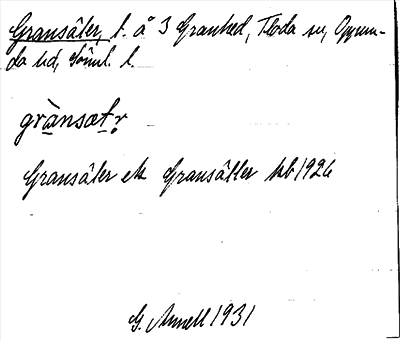 Gransäter, t. å 3 Granhed, Floda sn, Oppun-
da hd, Söml. l.
grànsætr
Gransäter el. Gransätter kb 1926
G. Annell 1931